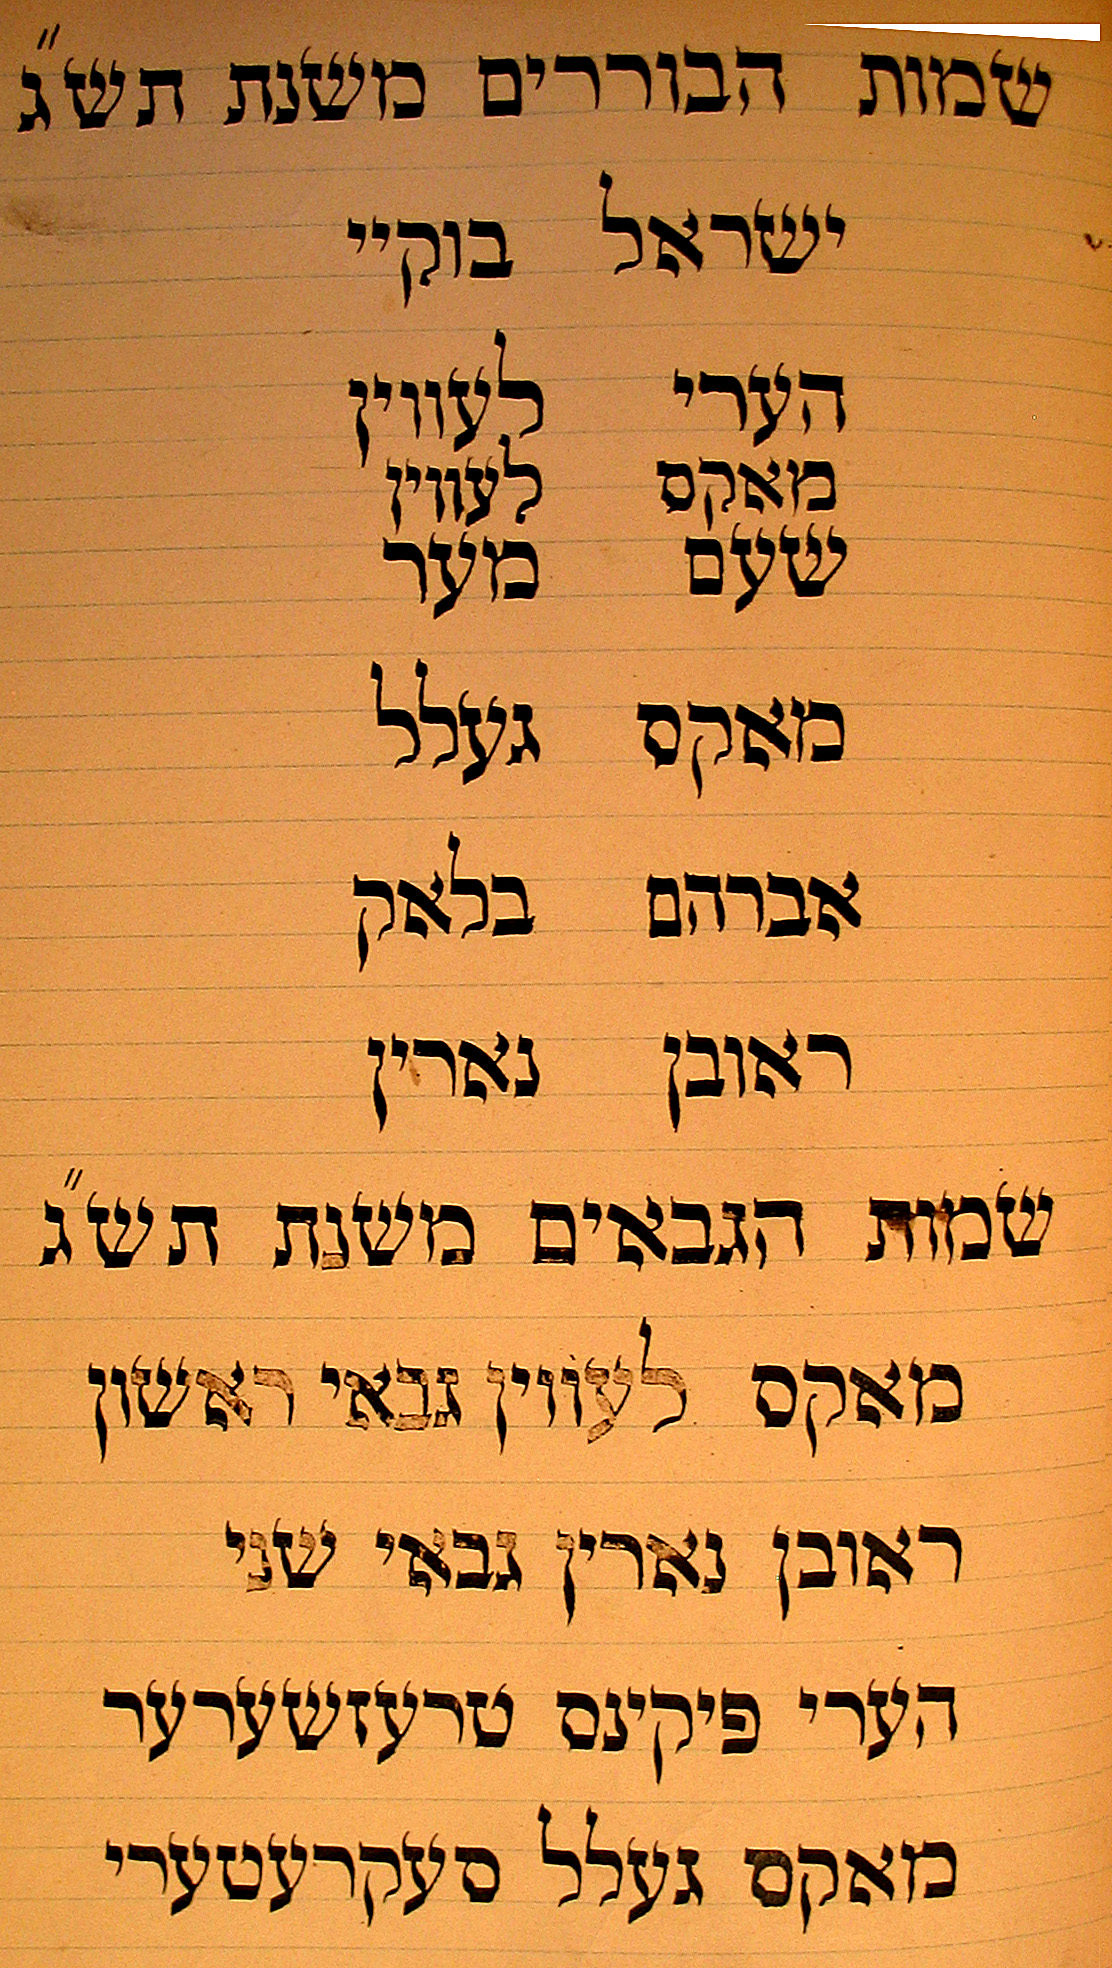 שמות הבוררים משנת תש״ג
ישראל בוקיי
הערי לעווין
מאקס לעווין
שעם מער
מאקס געלל
אברהם בלאק
ראובן נארין
שמות הגבאים משנת תש״ג
מאקס לעווין גבאי ראשון
ראובן נארין גבאי שני
הערי פיקינס טרעזשערער
מאקס געלל סעקרעטערי